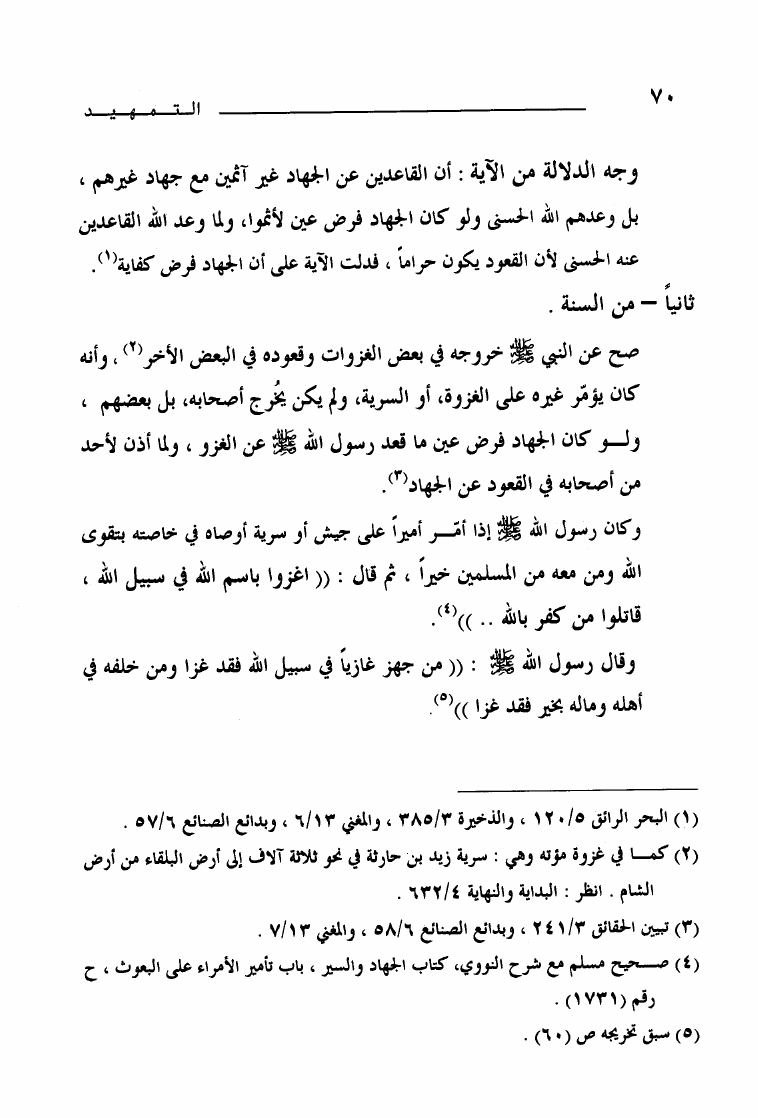 ٧٠
الـتـمـهـيـد
وجه الدلالة من الآية : أن القاعدين عن الجهاد غير آثمين مع جهاد غيرهم ،
بل وعدهم الله الحسنى ولو كان الجهاد فرض عين لأثموا، ولما وعد الله القاعدين
عنه الحسنى لأن القعود يكون حراماً ، فدلت الآية على أن الجهاد فرض كفاية(١).
ثانياً – من السنة .
صح عن النبي ﷺ خروجه في بعض الغزوات وقعوده في البعض الأخر(٢) ، وأنه
كان يؤمّر غيره على الغزوة، أو السرية، ولم يكن يُخرج أصحابه، بل بعضهم ،
ولــو كان الجهاد فرض عين ما قعد رسول الله ﷺ عن الغزو ، ولما أذن لأحد
من أصحابه في القعود عن الجهاد(٣).
وكان رسول الله ﷺ إذا أمّــر أميراً على جيش أو سرية أوصاه في خاصته بتقوى
الله ومن معه من المسلمين خيراً ، ثم قال : (( اغزوا باسم الله في سبيل الله ،
قاتلوا من كفر بالله .. ))(٤).
وقال رسول الله ﷺ : (( من جهز غازياً في سبيل الله فقد غزا ومن خلفه في
أهله وماله بخير فقد غزا ))(٥).
(١) البحر الرائق ١٢٠/٥ ، والذخيرة ٣٨٥/٣ ، والمغني ٦/١٣ ، وبدائع الصنائع ٥٧/٦ .
(٢) كمــا في غزوة مؤته وهي : سرية زيد بن حارثة في نحو ثلاثة آلاف إلى أرض البلقاء من أرض
الشام . انظر : البداية والنهاية ٦٣٢/٤ .
(٣) تبيين الحقائق ٢٤١/٣ ، وبدائع الصنائع ٥٨/٦ ، والمغني ٧/١٣ .
(٤) صــحيح مسلم مع شرح النووي، كتاب الجهاد والسير ، باب تأمير الأمراء على البعوث ، ح
رقم (١٧٣١) .
(٥) سبق تخريجه ص (٦٠) .